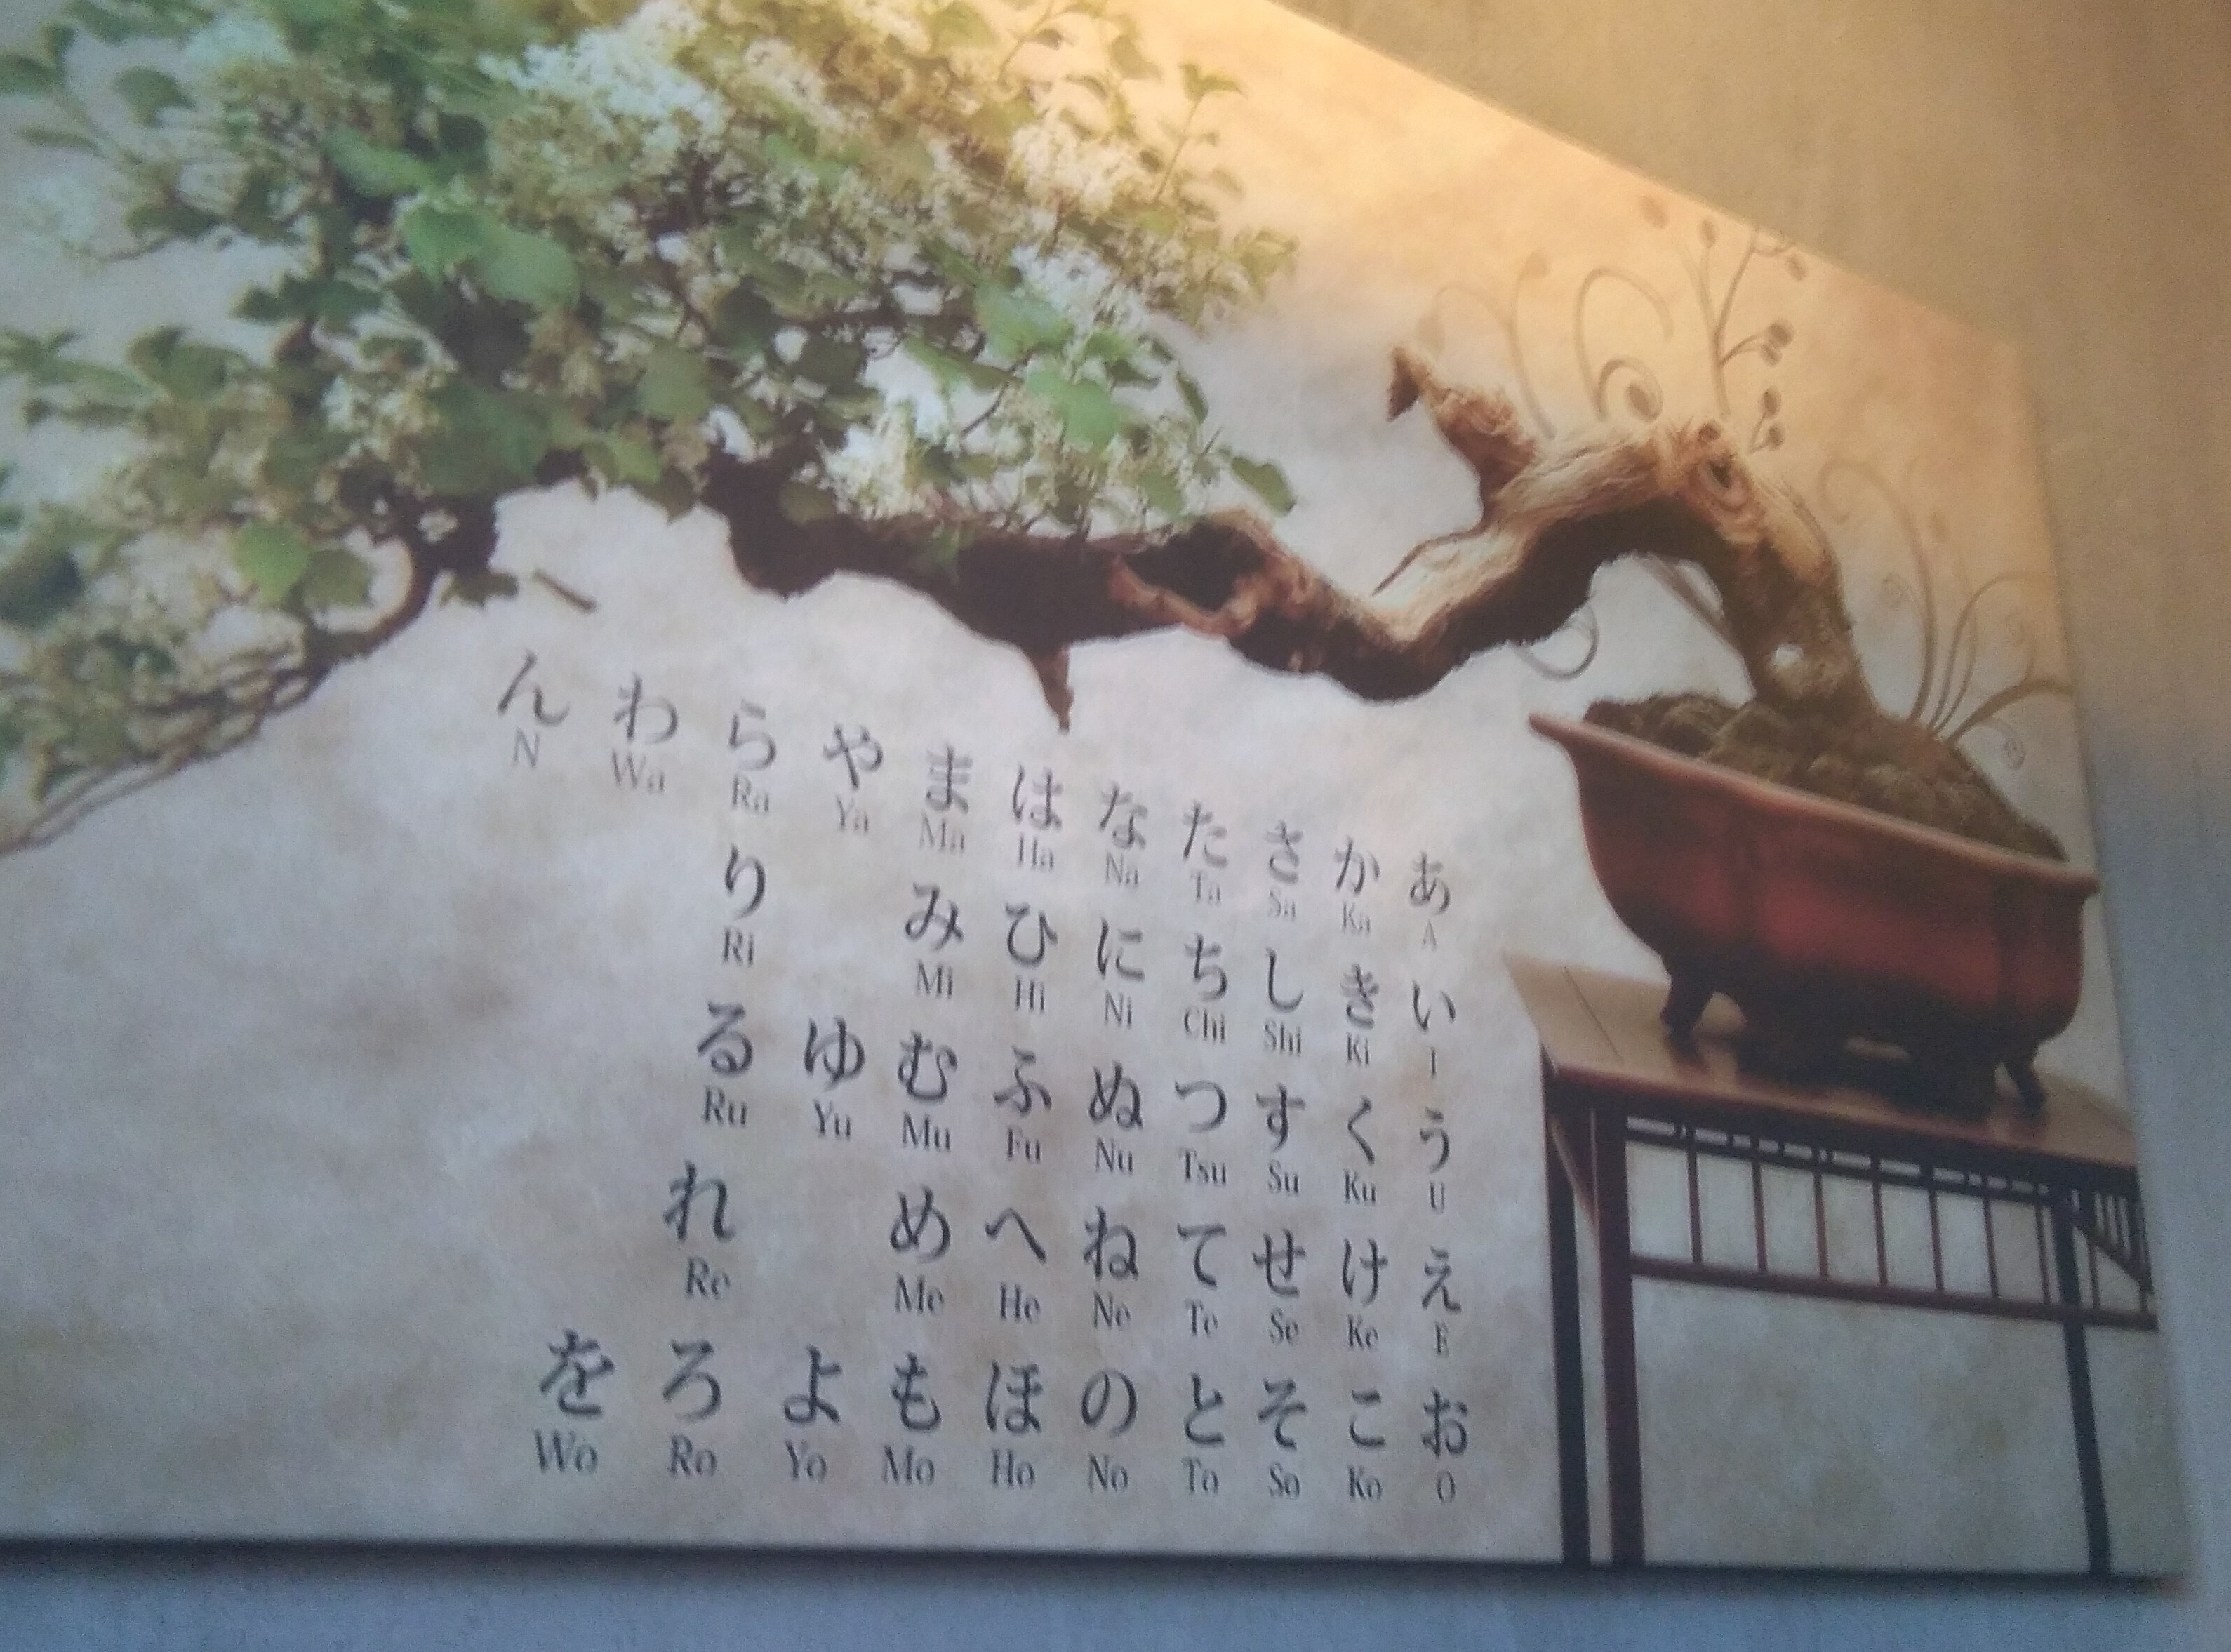 あ い う え お
A I U E O
か き く け こ
Ka Ki Ku Ke Ko
さ し す せ そ
Sa Shi Su Se So
た ち つ て と
Ta Chi Tsu Te To
な に ぬ ね の
Na Ni Nu Ne No
は ひ ふ へ ほ
Ha Hi Fu He Ho
ま み む め も
Ma Mi Mu Me Mo
や ゆ よ
Ya Yu Yo
ら り る れ ろ
Ra Ri Ru Re Ro
わ を
Wa Wo
ん
N